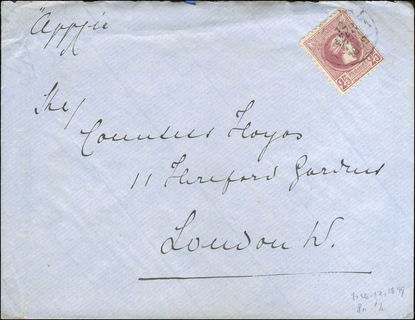 "Αγγλία
The/
Countess Hoyos
11 Hereford Gardens
London W.
25 25